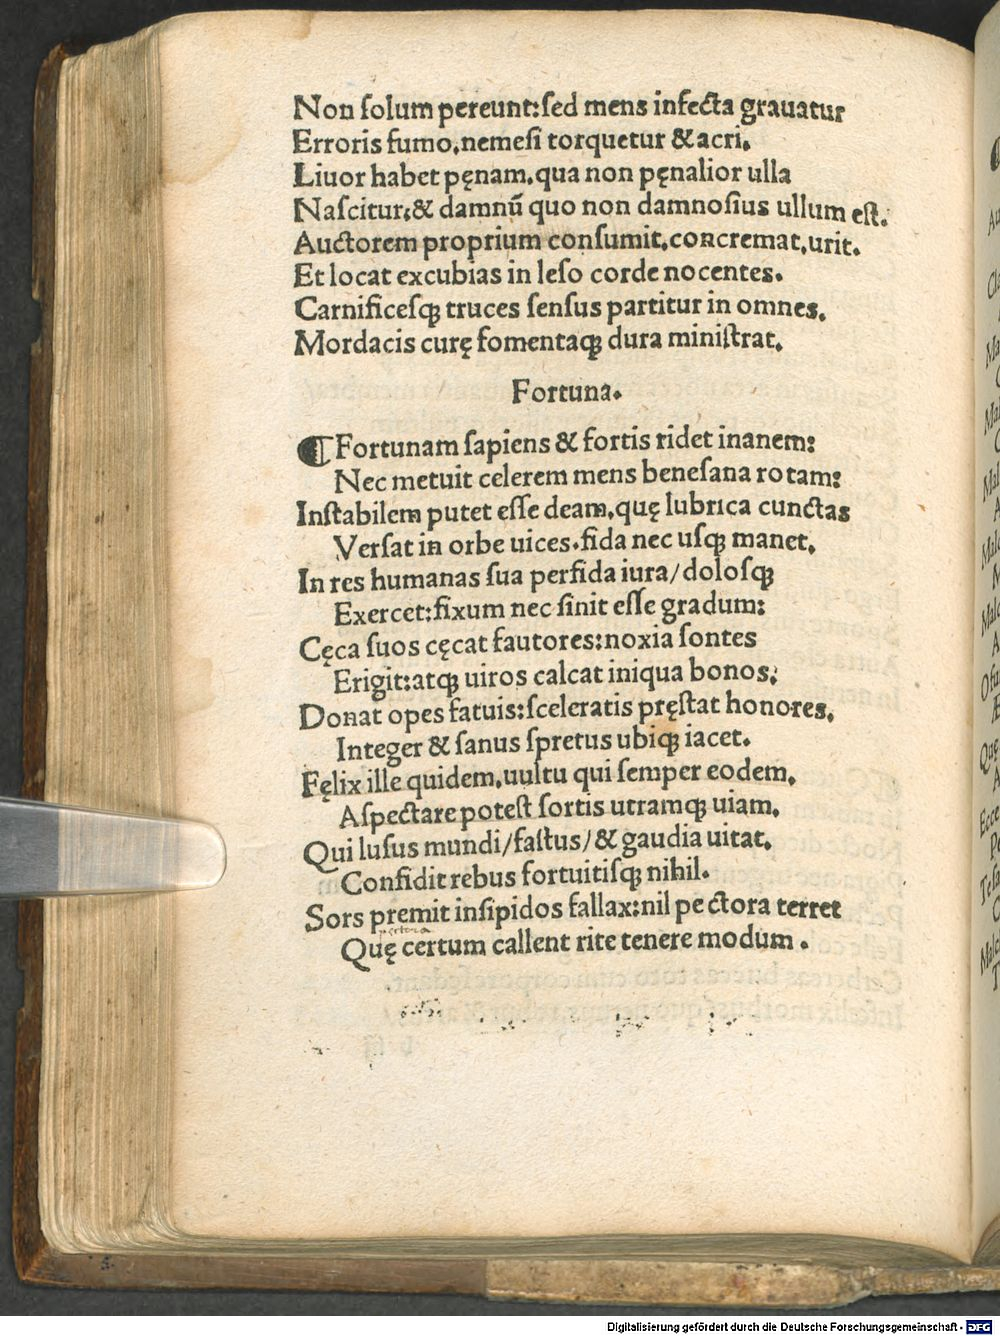 Non ſolum pereunt:ſed mens infecta grauatur
Erroris fumo.nemeſi torquetur & acri.
Liuor habet pęnam.qua non pęnalior ulla
Naſcitur:& damnū quo non damnoſius ullum eſt.
Auctorem proprium conſumit.concremat.urit.
Et locat excubias in leſo corde nocentes.
Carnificeſqꝫ truces ſenſus partitur in omnes.
Mordacis curę fomentaqꝫ dura miniſtrat.
Fortuna.
¶ Fortunam ſapiens & fortis ridet inanem:
Nec metuit celerem mens beneſana rotam:
Inſtabilem putet eſſe deam.quę lubrica cunctas
Verſat in orbe uices.fida nec uſqꝫ manet.
In res humanas ſua perfida iura/doloſqꝫ
Exercet:fixum nec ſinit eſſe gradum:
Cęca ſuos cęcat fautores:noxia ſontes
Erigit:atqꝫ uiros calcat iniqua bonos:
Donat opes fatuis:ſceleratis pręſtat honores.
Integer & ſanus ſpretus ubiqꝫ iacet.
Fęlix ille quidem.uultu qui ſemper eodem.
Aſpectare poteſt ſortis utramqꝫ uiam.
Qui luſus mundi/faſtus/& gaudia uitat.
Confidit rebus fortuitiſqꝫ nihil.
Sors premit inſipidos fallax:nil pectora terret
pectora
Quę certum callent rite tenere modum.
Digitalisierung gefördert durch die Deutsche Forschungsgemeinschaft - DFG